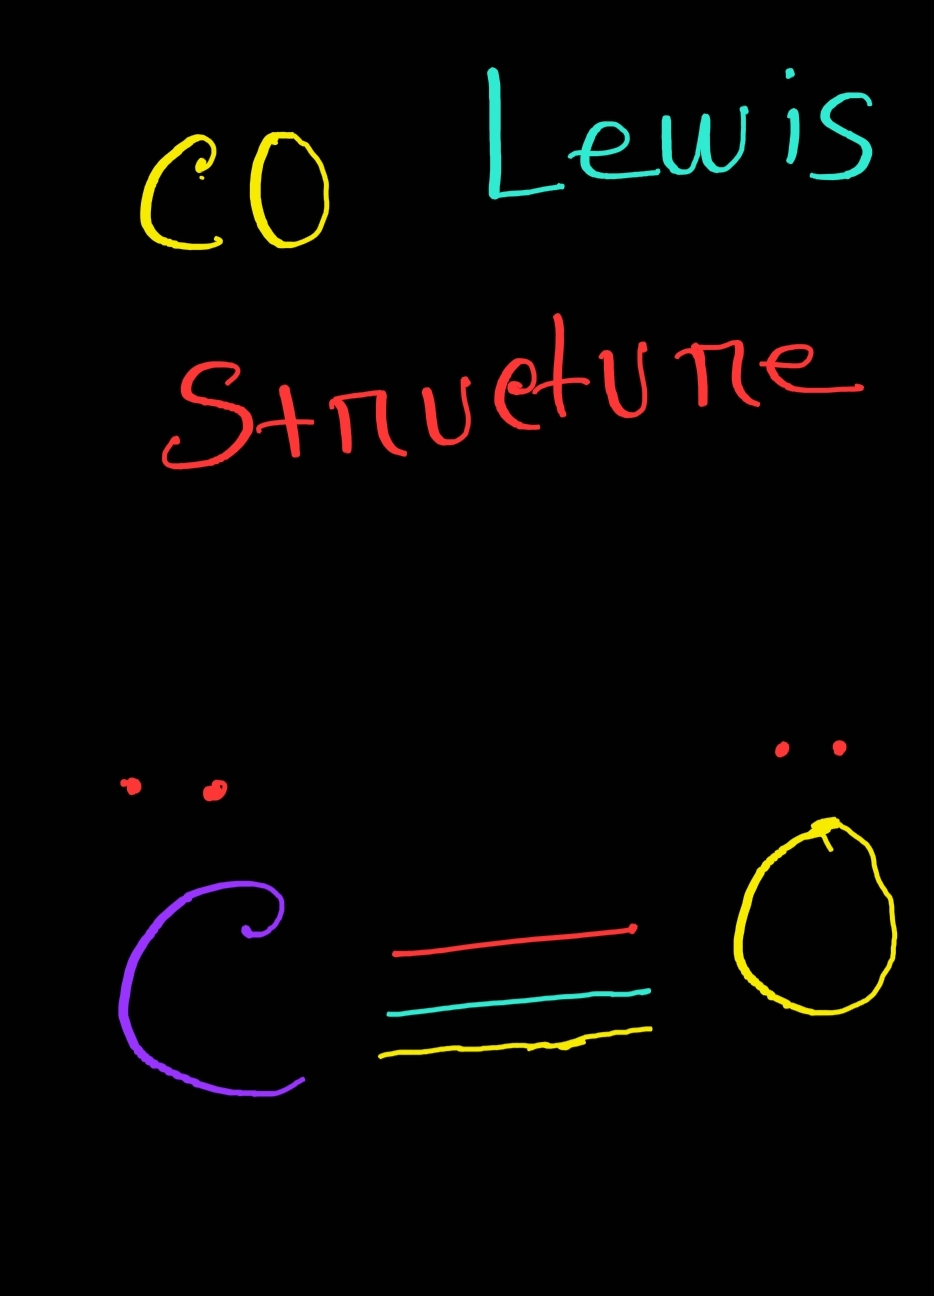 CO Lewis
Structure
.. ..
C ≡ O